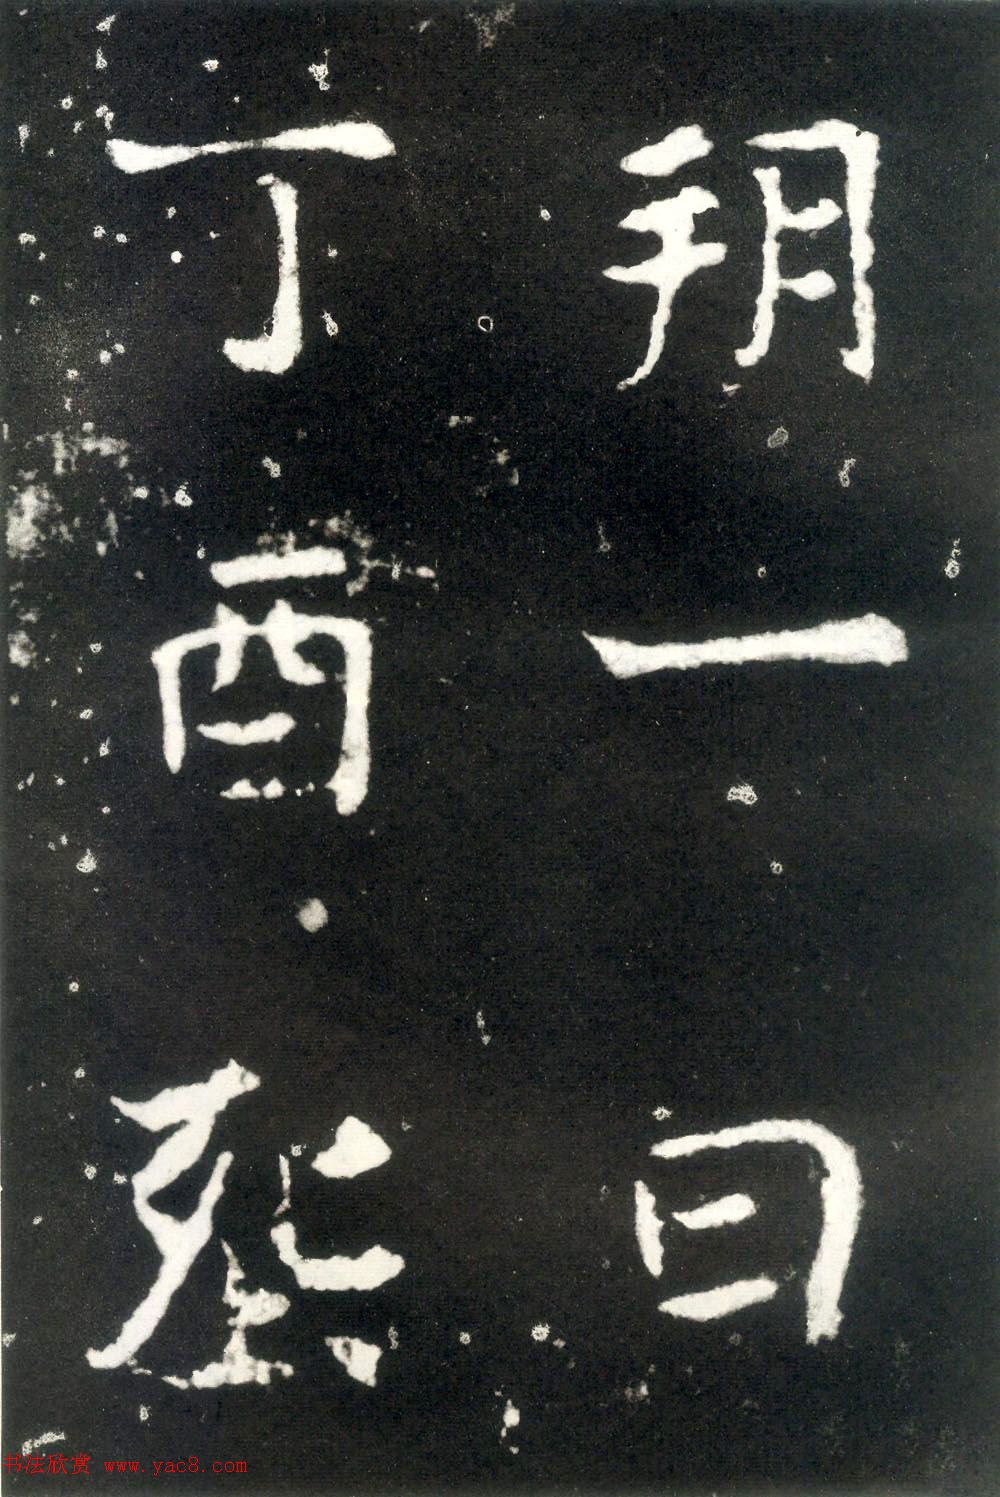 朔一日
丁酉
书法欣赏 www.yac8.com